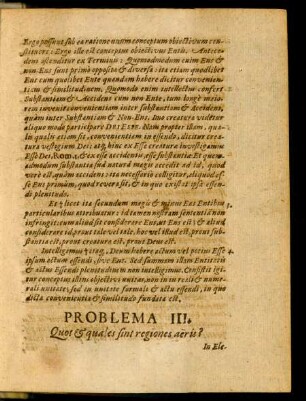 Ergo possunt sub ea ratione unum conceptum objectivum con-
stituere: Ergo ille est conceptus objectivus Entis. Antece-
dens ostenditur ex Terminis: Quemadmodum enim Ens &
non-Ens sunt primò opposita & diversa: ita etiam quodlibet
Ens cum quolibet Ente quandam habere dicitur convenien-
tiam & similitudinem. Quomodo enim intellectus confert
Substantiam & Accidens cum non Ente, tum longè majo-
rem invenit convenientiam inter Substantiam & Accidens,
quàm inter Substantiam & Non-Ens. Imo creatura videtur
aliquo modo participare DEI ESSE. Nam propter illam, quan-
tumcunque etiam sit, convenientiam in essendo, dicitur creatura
vestigium Dei: atque hinc ex Esse creaturæ investigamus
Esse Dei, Rom. 1. & ex esse accidentis, esse substantiæ Et quem-
admodum substantia sed autard megas accedit ad id, quod
verè est quàm accidens: ita necessariò colligitur, aliquid esse
Ens primum, quod revera sit, & in quo existat ipsa essen-
di plenitudo.
Et licet ista secundum magis & minus Ens Entibus
particularibus attribuatur: id tamen nostram sententiam non
infringit: cum aliud sit considerare Ens, ut Ens est & aliud
considerare id, prout tale vel tale, hoc vel illud est, prout sub-
stantia est, prout creatura est, prout Deus est.
Intelligemus Deum habere actum vel potius Esse
ipsum actum essendi sive Ens. Sed summam illam Entitatis
& actus Essendi plenitudinem non intelligimus. Consistit igi-
tur conceptus illius objectivus entis, non in re reali &
numerali unitate, sed in unitate formali & actu essendi, in quo
dicta convenientia & similitudo fundata est.
PROBLEMA III.
Quot & quales sint regiones aëris?
In Ele-